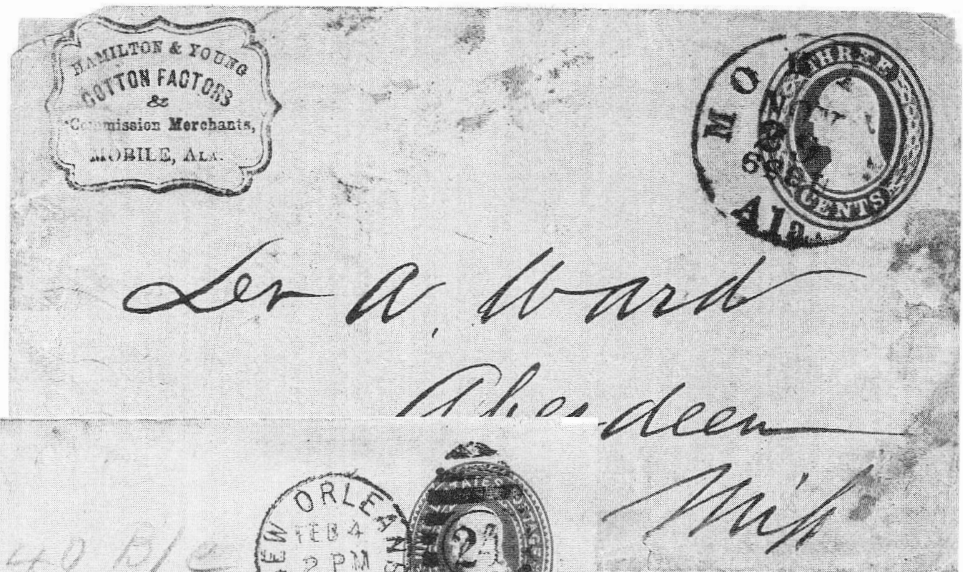 HAMILTON & YOUNG
COTTON FACTORS
&
Commission Merchants,
MOBILE, ALA.
THREE
CENTS
Ala.
A. Ward
Aberdeen
Miss
NEW ORLEANS
FEB 4
2 PM
2
40 B/C